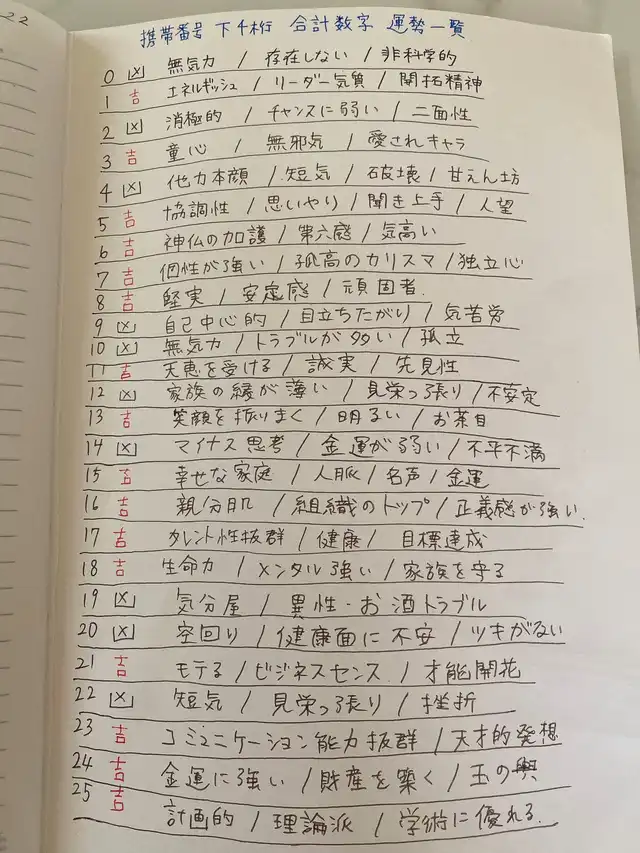 22
携帯番号 下4桁 合計数字 運勢一覧
0 凶 無気力 / 存在しない / 非科学的
1 吉 エネルギッシュ / リーダー気質 / 開拓精神
2 凶 消極的 / チャンスに弱い / 二面性
3 吉 童心 / 無邪気 / 愛されキャラ
4 凶 他力本願 / 短気 / 破壊 / 甘えん坊
5 吉 協調性 / 思いやり / 聞き上手 / 人望
6 吉 神仏の加護 / 第六感 / 気高い
7 吉 個性が強い / 孤高のカリスマ / 独立心
8 吉 堅実 / 安定感 / 頑固者.
9 凶 自己中心的 / 目立ちたがり / 気苦労
10 凶 無気力 / トラブルが多い / 孤立
11 吉 天恵を受ける / 誠実 / 先見性
12 凶 家族の縁が薄い / 見栄っ張り / 不安定
13 吉 笑顔を振りまく / 明るい / お茶目
14 凶 マイナス思考 / 金運が弱い / 不平不満
15 吉 幸せな家庭 / 人脈 / 名声 / 金運
16 吉 親分肌 / 組織のトップ / 正義感が強い.
17 吉 タレント性抜群 / 健康 / 目標達成
18 吉 生命力 / メンタル強い / 家族を守る
19 凶 気分屋 / 異性・お酒トラブル
20 凶 空回り / 健康面に不安 / ツキがない
21 吉 モテる / ビジネスセンス / 才能開花
22 凶 短気 / 見栄っ張り / 挫折
23 吉 コミュニケーション能力抜群 / 天才的発想
24 吉 金運に強い / 財産を築く / 玉の輿
25 吉 計画的 / 理論派 / 学術に優れる.